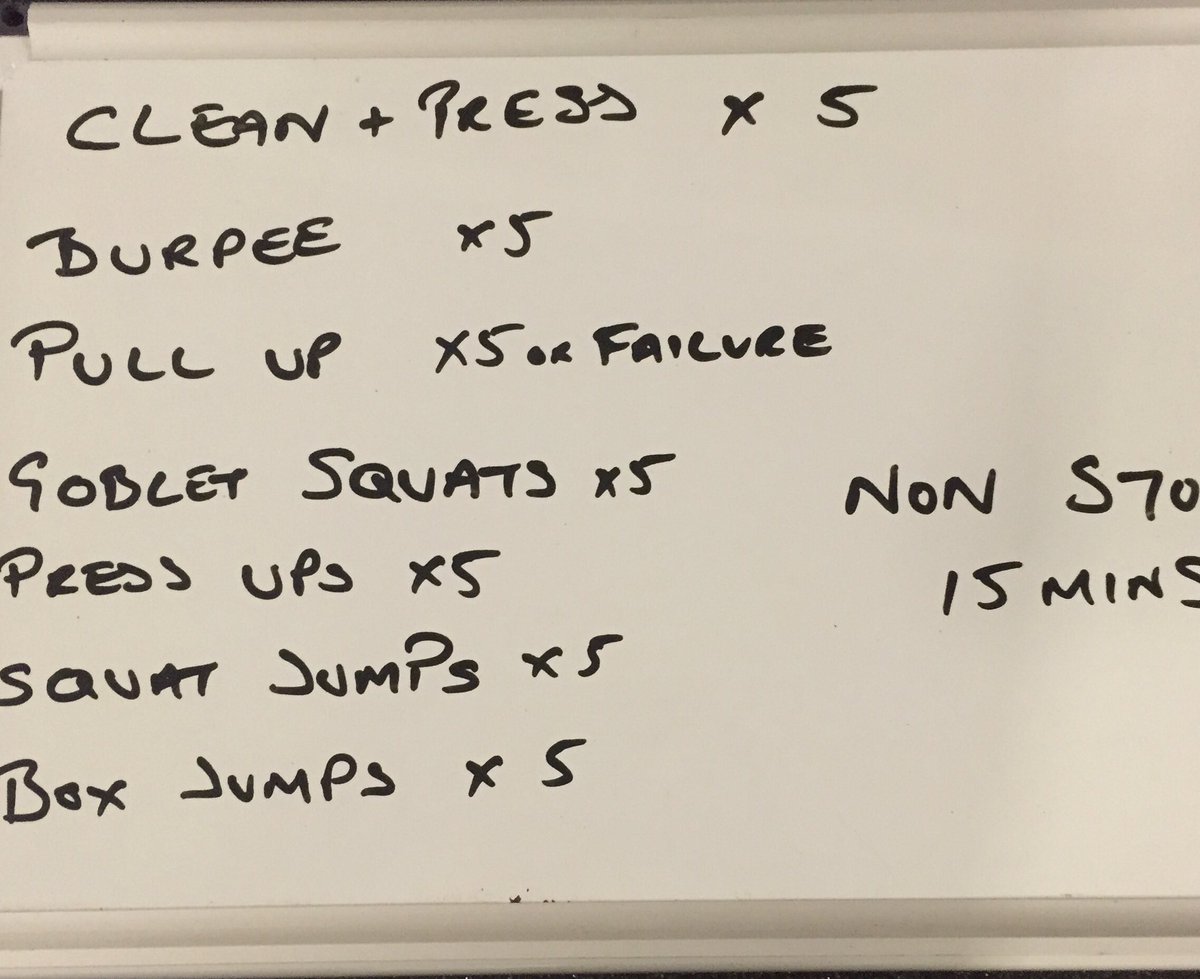 CLEAN + PRESS x 5
BURPEE x5
PULL UP x5 OR FAILURE
GOBLET SQUATS x5
NON STO
PRESS UPS x5
15 MINS
SQUAT JUMPS x5
BOX JUMPS x 5